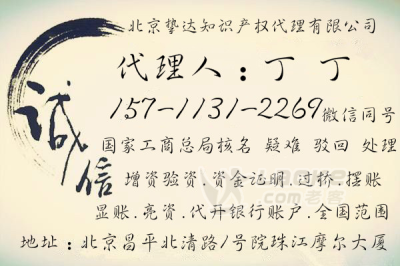 北京挚达知识产权代理有限公司
代理人：丁 丁
诚信
157-1131-2269微信同号
国家工商总局核名 疑难 驳回 处理
增资验资.资金证明.过桥.摆账
显账.亮资.代开银行账户.全国范围
地址：北京昌平北清路1号院珠江摩尔大厦